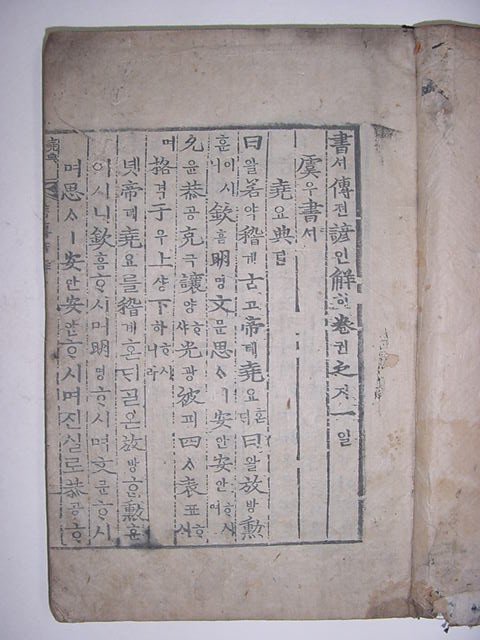 書셔傳젼諺언解ᄒᆡ卷권之지一일
虞우書셔
堯요典뎐
曰왈若약稽계古고帝뎨堯요ᄒᆞᆫᄃᆡ曰왈放방勳
훈이시니欽흠明명文문思ᄉᆞㅣ安안安안ᄒᆞ시며
允윤恭공克극讓양ᄒᆞ샤光광被피四ᄉᆞ表표ᄒᆞ시
며格격于우上샹下하ᄒᆞ시니라
녯帝뎨堯요를稽계혼ᄃᆡᄀᆞᆯ온放방ᄒᆞᆫ勳훈
이시니欽흠ᄒᆞ시며明명ᄒᆞ시며文문ᄒᆞ시
며思ᄉᆞㅣ安안安안ᄒᆞ시며진실로恭공ᄒᆞ